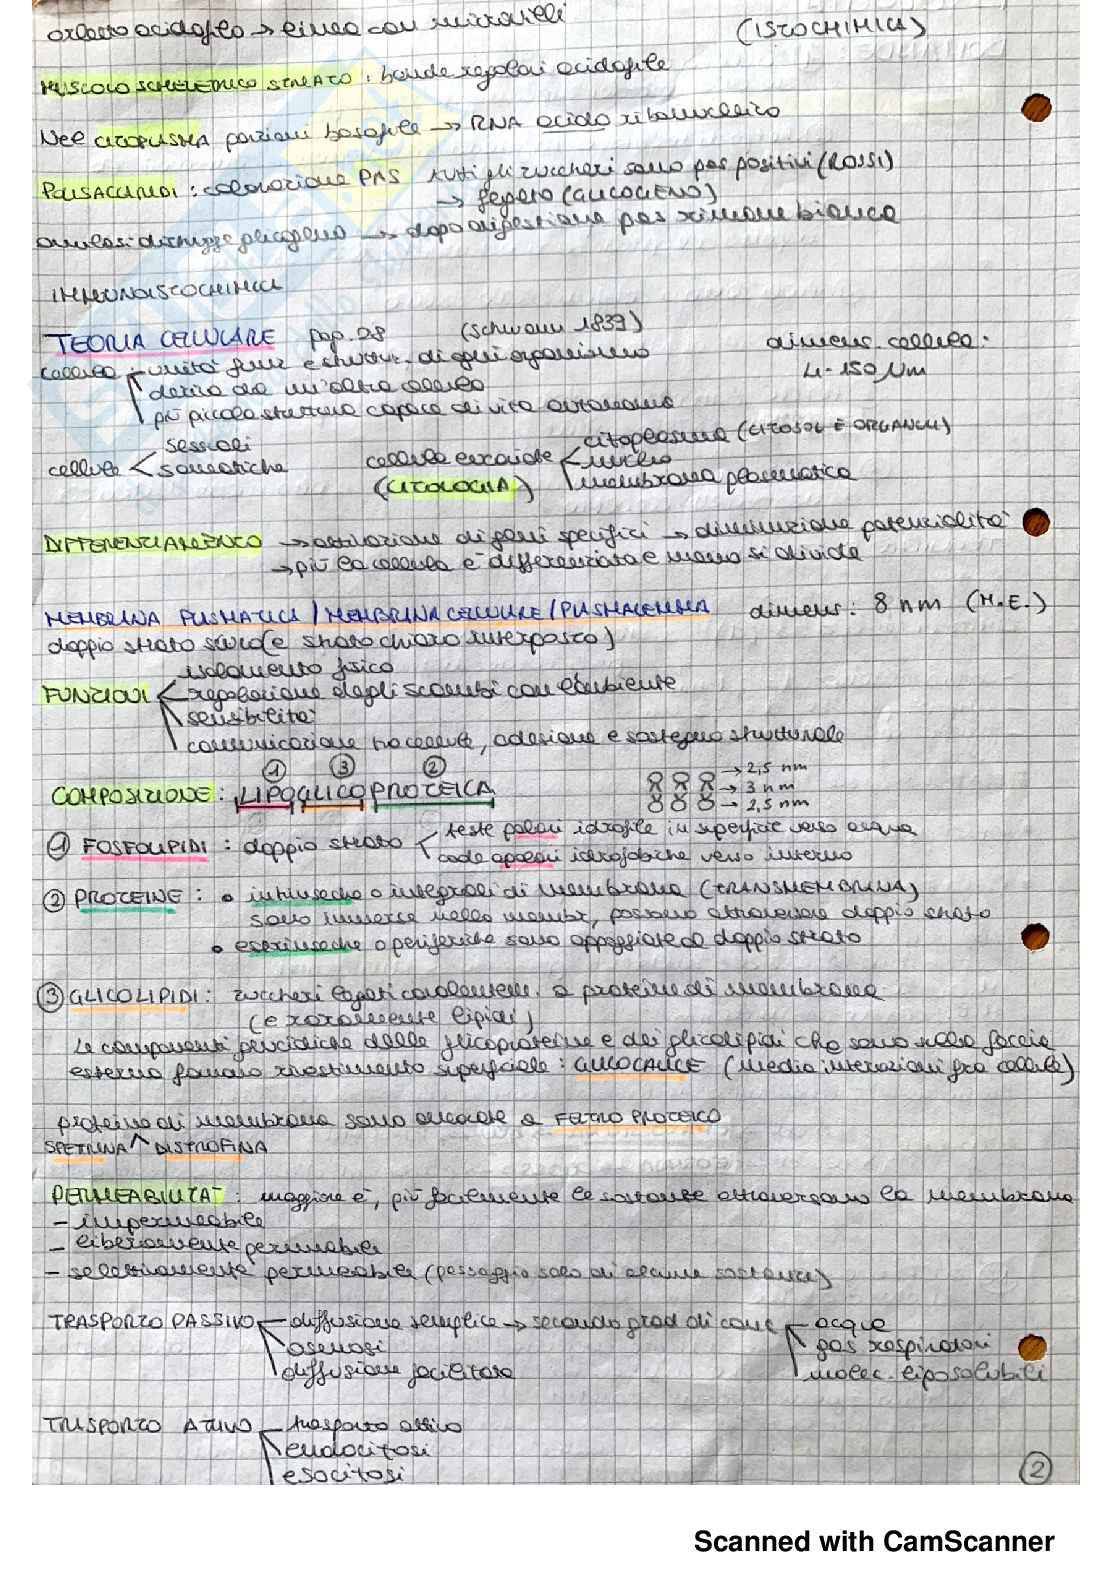 orletto acidofilo → linea con microvilli (ISTOCHIMICA)
MUSCOLO SCHELETRICO STRIATO : bande regolari acidofile
Nel CITOPLASMA porzioni basofile → RNA acido ribonucleico
POLISACCARIDI : colorazione PAS tutti gli zuccheri sono pas positivi (ROSSI)
→ fegato (GLICOGENO)
amilasi distrugge glicogeno → dopo digestione pas rimane bianca
IMMUNOISTOCHIMICA
TEORIA CELLULARE pag. 28 (Schwann 1839) dimens. cellula :
cellula : unità funz e struttur. di ogni organismo 4-150 μm
deriva da un'altra cellula
più piccola struttura capace di vita autonoma
cellule < sessuali
somatiche
cellule eucariote < citoplasma (CITOSOL E ORGANULI)
nucleo
(CITOLOGIA) membrana plasmatica
DIFFERENZIAMENTO → attivazione di geni specifici → diminuzione potenzialità
→ più la cellula è differenziata e meno si divide
MEMBRANA PLASMATICA / MEMBRANA CELLULARE / PLASMALEMMA dimens : 8 nm (M.E.)
doppio strato scuro (e strato chiaro interposto)
FUNZIONI < isolamento fisico
regolazione degli scambi con l'ambiente
sensibilità
comunicazione tra cellule, adesione e sostegno strutturale
① ③ ②
COMPOSIZIONE : LIPOGLICOPROTEICA
→ 2,5 nm
→ 3 nm
→ 2,5 nm
① FOSFOLIPIDI : doppio strato < teste polari idrofile in superficie verso acqua
code apolari idrofobiche verso interno
② PROTEINE : • intrinseche o integrali di membrana (TRANSMEMBRANA)
sono immerse nella membr, possono attraversare doppio strato
• estrinseche o periferiche sono appoggiate al doppio strato
③ GLICOLIPIDI : zuccheri legati covalentem. a proteine di membrana
(e raramente lipidi)
Le componenti glucidiche delle glicoproteine e dei glicolipidi che sono sulla faccia
esterna formano rivestimento superficiale : GLICOCALICE (media interazioni fra cellule)
proteine di membrana sono ancorate a FELTRO PROTEICO
SPETTRINA ^ DISTROFINA
PERMEABILITA' : maggiore è, più facilmente le sostanze attraversano la membrana
- impermeabile
- liberamente permeabili
- selettivamente permeabili (passaggio solo di alcune sostanze)
TRASPORTO PASSIVO < diffusione semplice → secondo grad di conc < acqua
osmosi gas respiratori
diffusione facilitata molec. liposolubili
TRASPORTO ATTIVO < trasporto attivo
endocitosi
esocitosi
②
Scanned with CamScanner